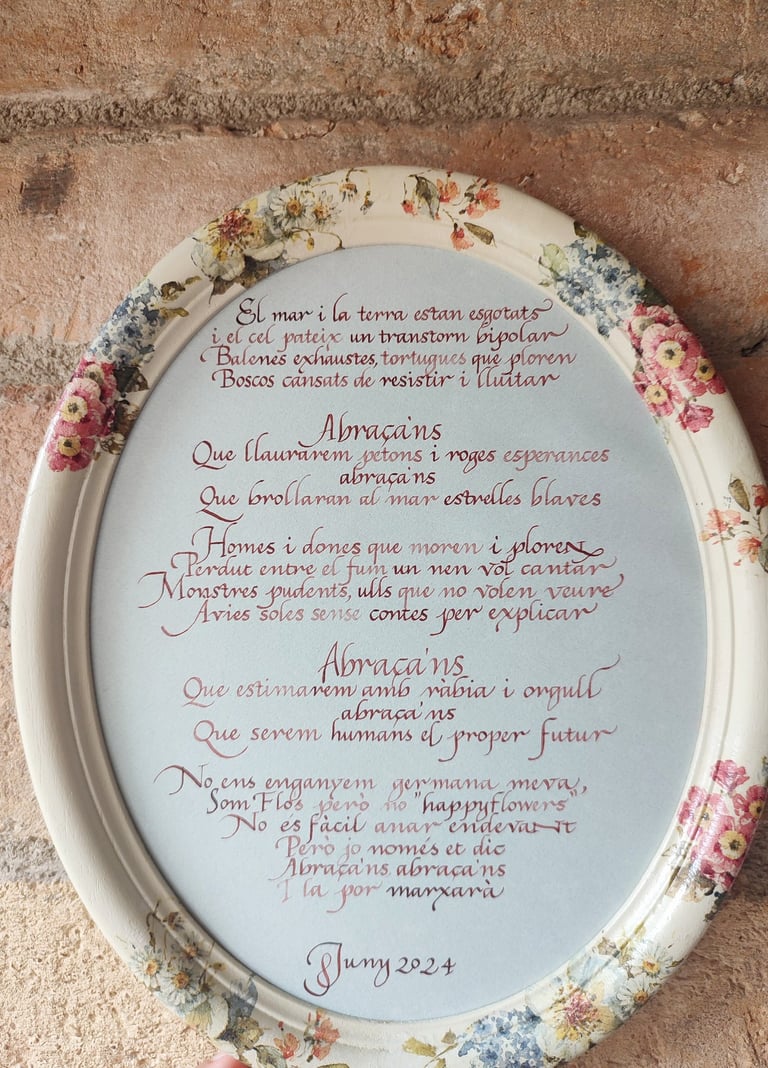 El mar i la terra estan esgotats
i el cel pateix un transtorn bipolar
Balenes exhaustes, tortugues que ploren
Boscos cansats de resistir i lluitar
Abraça'ns
Que llaurarem petons i roges esperances
abraça'ns
Que brollaran al mar estrelles blaves
Homes i dones que moren i ploren
Perdut entre el fum un nen vol cantar
Monstres pudents, ulls que no volen veure
Àvies soles sense contes per explicar
Abraça'ns
Que estimarem amb ràbia i orgull
abraça'ns
Que serem humans el proper futur
No ens enganyem germana meva,
Som Flos però no "happyflowers"
No és fàcil anar endevant
Però jo només et dic
Abraça'ns, abraça'ns
I la por marxarà
Juny 2024